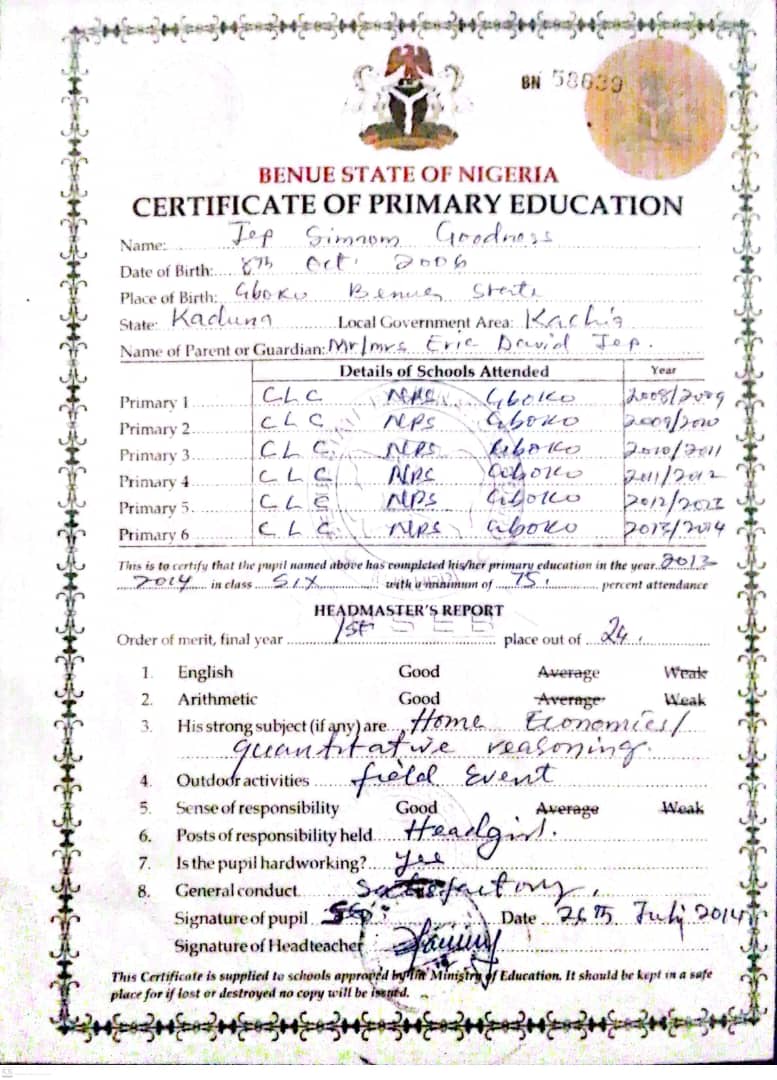 BN 58639
BENUE STATE OF NIGERIA
CERTIFICATE OF PRIMARY EDUCATION
Name: Jep Simnom Goodness
Date of Birth: 8th Oct. 2006
Place of Birth: Gboko Benue State
State: Kaduna Local Government Area: Kachia
Name of Parent or Guardian: Mr/mrs Eric David Jep.
Details of Schools Attended Year
Primary 1 CLC NPS Gboko 2008/2009
Primary 2 CLC NPS Gboko 2009/2010
Primary 3 CLC NPS Gboko 2010/2011
Primary 4 CLC NPS Gboko 2011/2012
Primary 5 CLC NPS Gboko 2012/2013
Primary 6 CLC NPS Gboko 2013/2014
This is to certify that the pupil named above has completed his/her primary education in the year 2013
2014 in class SIX with a minimum of 75. percent attendance
HEADMASTER'S REPORT
Order of merit, final year 1st place out of 24.
1. English Good Average Weak
2. Arithmetic Good Average Weak
3. His strong subject (if any) are Home Economics/
quantitative reasoning.
4. Outdoor activities field Event
5. Sense of responsibility Good Average Weak
6. Posts of responsibility held Headgirl.
7. Is the pupil hardworking? yes
8. General conduct satisfactory.
Signature of pupil Date 26th July 2014
Signature of Headteacher
This Certificate is supplied to schools approved by the Ministry of Education. It should be kept in a safe
place for if lost or destroyed no copy will be issued.